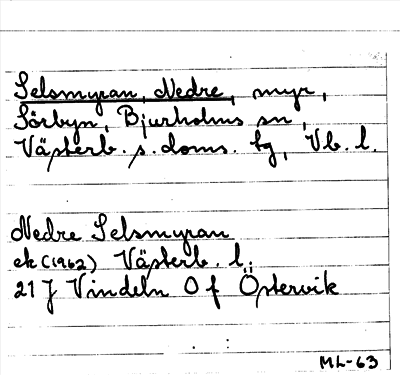 Selsmyran, Nedre, myr,
Sörbyn, Bjurholms sn,
Västerb. s. doms. tg, Vb. l.
Nedre Selsmyran
ek (1962) Västerb. l.
21 J Vindeln 0 f Östervik
ML-63